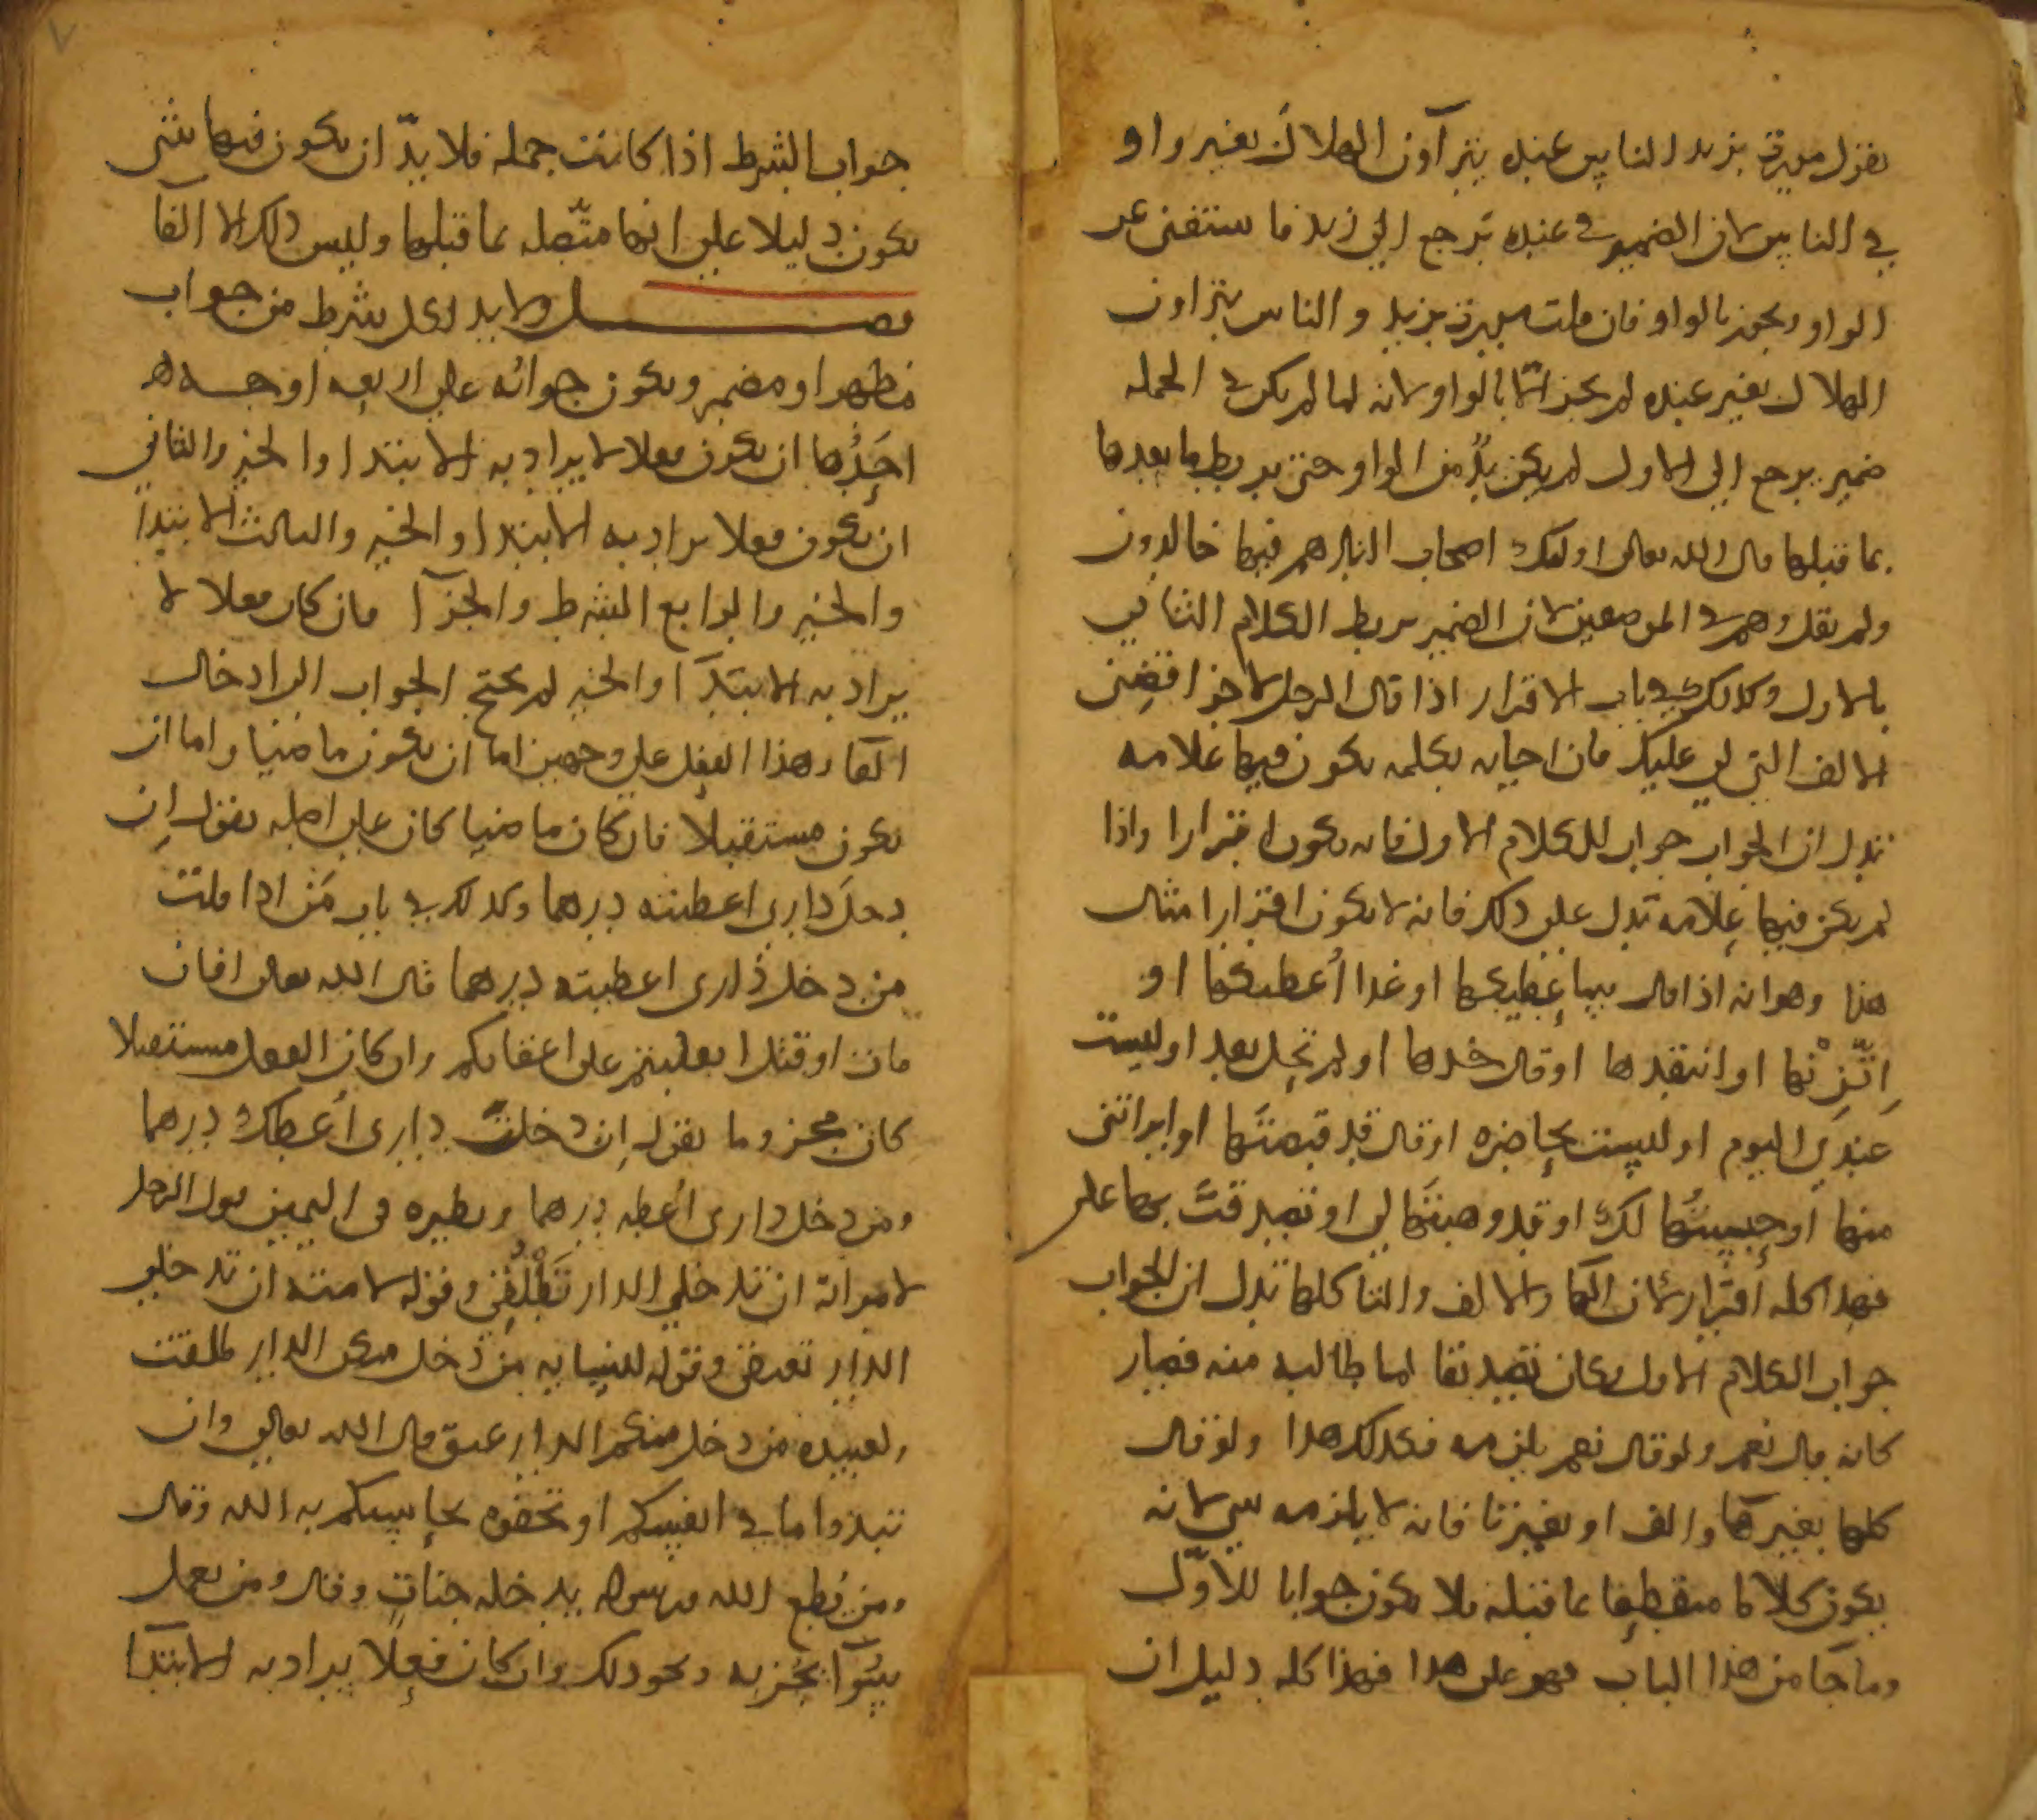 تقول مررت بزيد الناس عنده يتراَون الهلال بغير واو
في الناس لان الضمير في عنده ترجع الي زيد فاستغنى عن
الواو ويجوز بالواو فان قلت مررت بزيد والناس يتراون
الهلال بغير عنده لم يجز الّا بالواو لانه لما لم يكن في الجمله
ضمير يرجع الي الاول لم يكن بدٌ من الواو حتى يربط ما بعدها
بما قبلها قال الله تعالى اولئك اصحاب النار هم فيها خالدون
ولم يقل وهم في الموضعين لان الضمير يربط الكلام الثاني
بالاول وكذلك في باب الاقرار اذا قال الرجل لاخر اقضِني
الالف التي لي عليك فان اجابه بكلمه يكون فيها علامه
تدل ان الجواب جواب للكلام الاول فانه يكون اقرارا واذا
لم يكن فيها علامه تدل على ذلك فانه لا يكون اقرارا مثال
هذا وهو انه اذا قال سأعطيكها او غدا أُعطيكها او
اِتّزِنْها او انتقدها او قال خذها او لم تحِل بعد او ليست
عندي اليوم او ليست بحاضره او قال قد قبضتَها او ابراتني
منها او حسبتُها لك او قد وهبتَها لي او تصدقتَ بها علي
فهذا كله اقرار لان الها والالف والتا كلها تدل ان الجواب
جواب الكلام الاول وكان تصديقا لما طالبه منه فصار
كانه قال نعم ولو قال نعم يلزمه فكذلك هذا ولو قال
كلها بغير ها والف او بغير تا فانه لا يلزمه شي لانه
يكون كلاما منقطعا عما قبله فلا يكون جوابا للاوّل
وما جَا من هذا الباب فهو على هذا فهذا كله دليل ان
جواب الشرط اذا كانت جمله فلا بدّ ان يكون فيها شى
يكون دليلا على انها متّصله بما قبلها وليس ذلك الا الفآ
فصل ولا بد لكل شرط من جواب
مظهر او مضمر ويكون جوابُه على اربعه اوجه
احَدُها ان يكون فعلا لا يراد به الابتدا والخبر والثاني
ان يكون فعلا يراد به الابتدا والخبر والثالث الابتدا
والخبر والرابع الشرط والجزآ فان كان فعلا لا
يراد به الابتدآ والخبر لم يحتج الجواب الى ادخال
الفا وهذا الفعل على وجهين اما ان يكون ماضيا واما ان
يكون مستقبلا فان كان ماضيا كان على اصله تقول اِن
دخلَ داري اعطيته درهما وكذلك في باب مَن اذا قلت
من دخل داري اعطيته درهما قال الله تعالى افان
مات او قتل انقلبتم على اعقابكم وان كان الفعل مستقبلا
كان مجزوما تقول اِن دخلتَ داري أُعطك درهما
ومن دخل داري أُعطه درهما ونظيره في اليمين قول الرجل
لامراته ان تدخلي الدار تَطْلُقي وقوله لامته ان تدخلي
الدار تعتقي وقوله لنسايه من دخل منكن الدار طلقت
ولعبيده من دخل منكم الدار عتق قال الله تعالى وان
تبدوا ما في انفسكم او تخفوه يحاسبكم به الله وقال
ومن يُطع الله ورسوله يدخله جناتٍ وقال ومن يعمل
سُوآ يُجز به ونحو ذلك وان كان فعلا يراد به الابتدآ